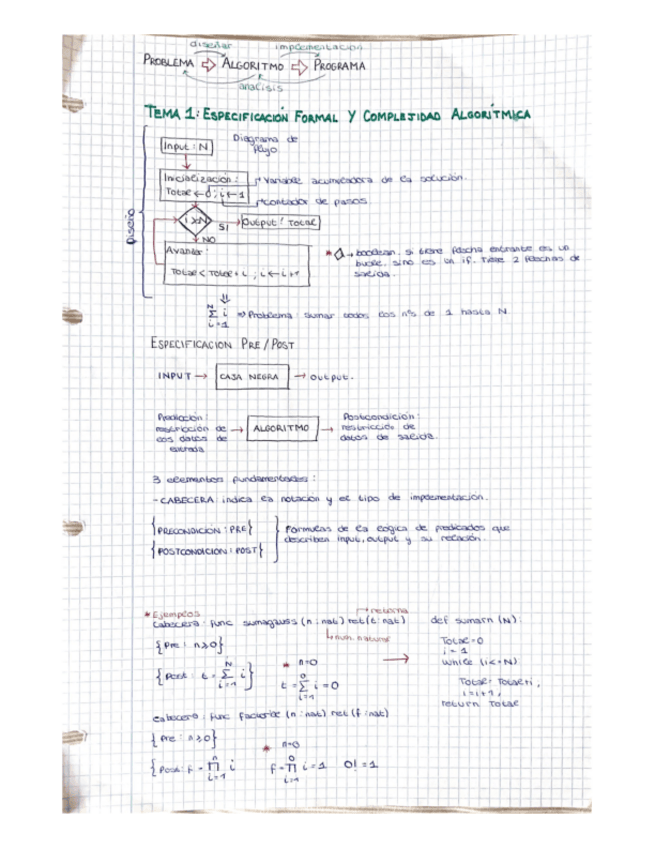 diseñar implementación
PROBLEMA ⇨ ALGORITMO ⇨ PROGRAMA
análisis
TEMA 1: ESPECIFICACIÓN FORMAL Y COMPLEJIDAD ALGORÍTMICA
Diagrama de
flujo
Input: N
Diseño
Inicialización:
Total ← 0; i ← 1
→ Variable acumuladora de la solución.
→ contador de pasos
i > N
SI
Output: Total
NO
Avanzar:
Total < Total + i ; i ← i + 1
* ◇ → boolean, si tiene flecha entrante es un
bucle, sino es un if. Tiene 2 flechas de
salida.
N
Σ i ⇒ Problema: sumar todos los nºs de 1 hasta N
i=1
ESPECIFICACIÓN PRE/POST
INPUT → CAJA NEGRA → output.
restricción de
los datos de
entrada
→ ALGORITMO →
Postcondición:
restricción de
datos de salida.
3 elementos fundamentales:
- CABECERA indica la notación y el tipo de implementación.
{PRECONDICIÓN: PRE}
{POSTCONDICIÓN: POST}
Formulas de la lógica de predicados que
describen input, output y su relación.
* Ejemplos
→ retorna
cabecera: func sumagauss (n: nat) ret (t: nat)
↳ num. natural
{Pre: n≥0}
{Post: t = Σ i}
N
i=1
* n=0
t = Σ i = 0
0
i=1
→
def sumarn (N):
Total=0
i = 1
while (i<=N)
Total= Total+i,
i=i+1,
return Total
cabecera: func factorial (n: nat) ret (f: nat)
{Pre: n≥0}
{Post: f = Π i
n
i=1
* n=0
f = Π i = 1 0! = 1
0
i=1